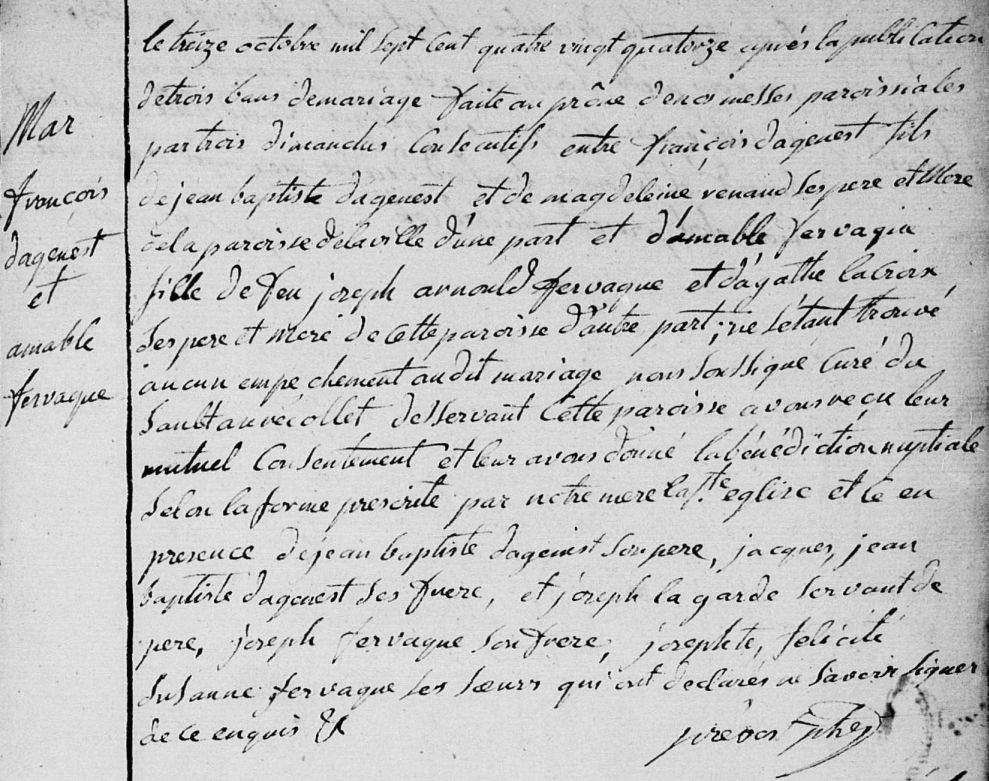 Mar
françois
dagenest
et
amable
fervaque
le treize octobre mil sept cent quatre vingt quatorze après la publication
de trois bans de mariage faite au prône de nos messes paroissiales
par trois dimanches consecutifs entre françois dagenest fils
de jean baptiste dagenest et de magdeleine renaud ses pere et Mere
de la paroisse de la ville d'une part et d'amable fervaqu
fille de feu joseph arnould fervaque et d'agathe la croix
ses pere et mere de cette paroisse d'autre part; ne s'étant trouvé
aucun empechement au dit mariage nous soussigné curé du
Sault au recollet desservant cette paroisse avons reçu leur
mutuel consentement et leur avons donné la bénédiction nuptiale
selon la forme prescrite par notre mere la s.te eglise et ce en
presence de jean baptiste dagenest son pere, jacques, jean
baptiste dagenest ses frere, et joseph la garde servant de
pere, joseph fervaque son frere, josephte, felicité
susanne fervaque ses sœurs qui ont declarés ne savoir signer
de ce enquis &c
prévost ptre